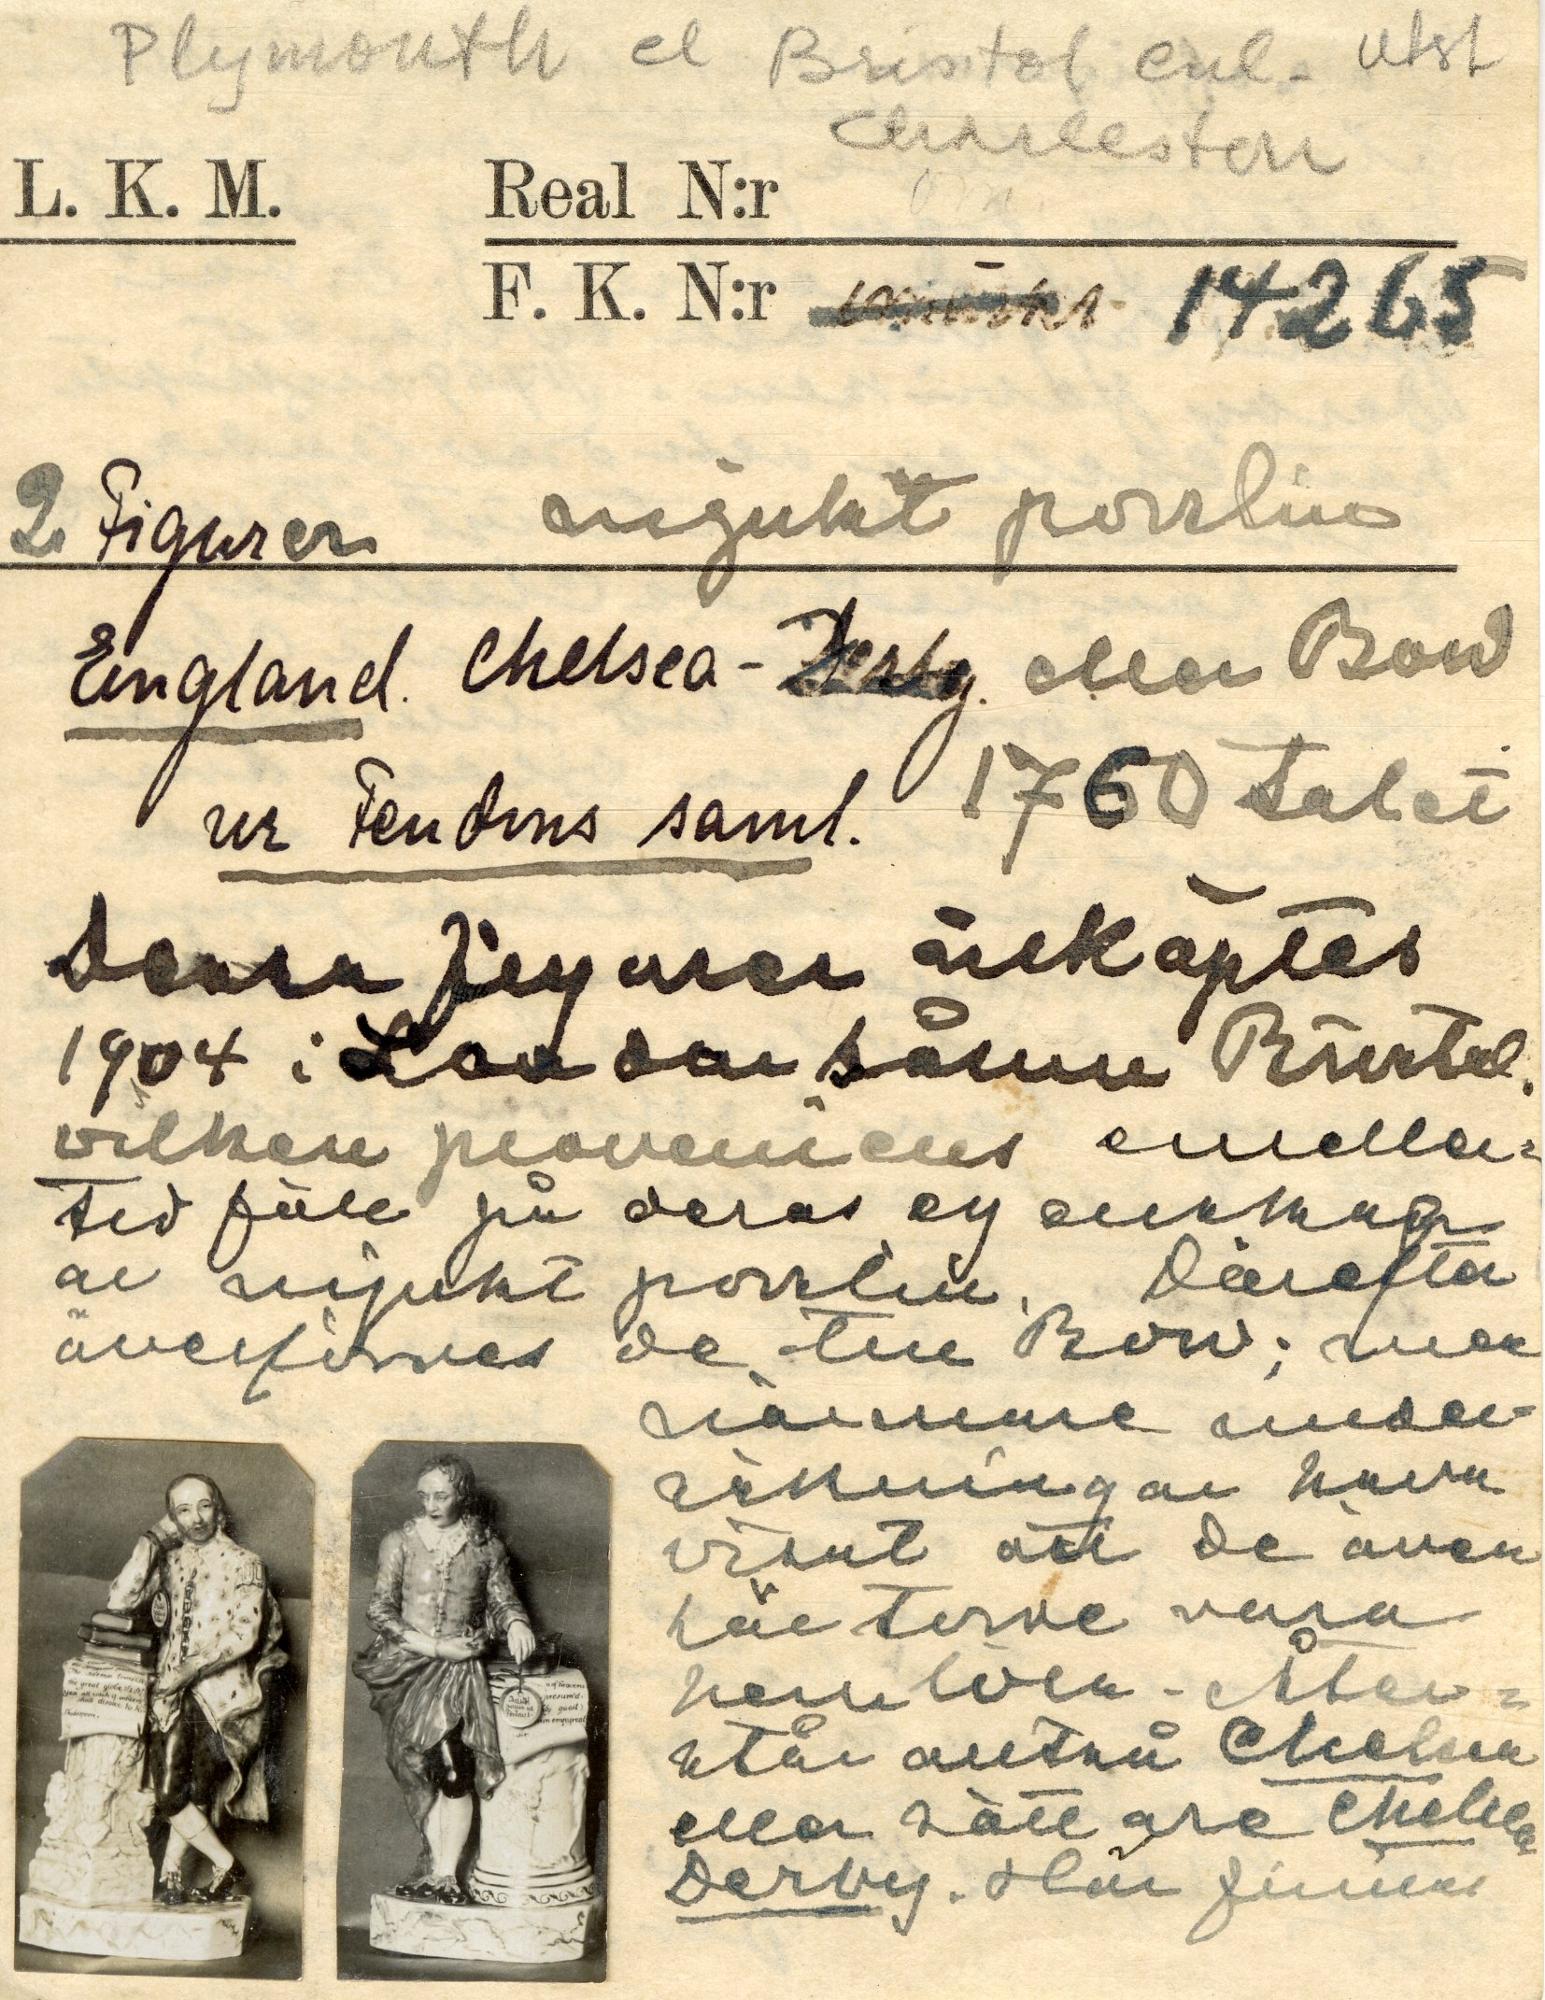 Plymouth el Bristol enl. utst
Charleston
L. K. M. Real N:r
F. K. N:r 14265
2 Figurer mjukt porslin
England. Chelsea-Derby. eller Bow
ur Fendins saml. 1760 talet
Dessa figurer inköptes
1904 i London såsom Bristol.
vilken proveniens emeller-
tid föll på deras egenskap
av mjukt porslin. Därefter
överfördes de till Bow; men
närmare under-
sökningar hava
visat att de även
här torde vara
hemlösa. Åter-
står altså Chelsea
eller rättare Chelsea
Derby. Här finnas
The solemn temples
the great globe itself